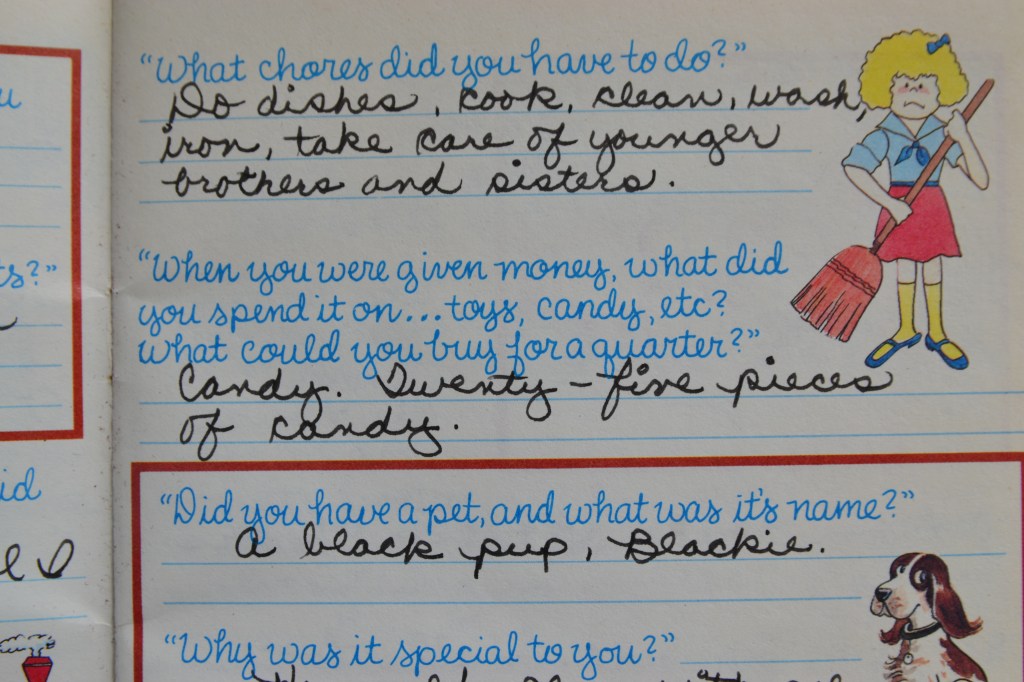 "What chores did you have to do?"
Do dishes, cook, clean, wash,
iron, take care of younger
brothers and sisters.
"When you were given money, what did
you spend it on...toys, candy, etc?
What could you buy for a quarter?"
Candy. Twenty-five pieces
of candy.
"Did you have a pet, and what was it's name?"
A black pup, Blackie.
"Why was it special to you?"
ts?"
id